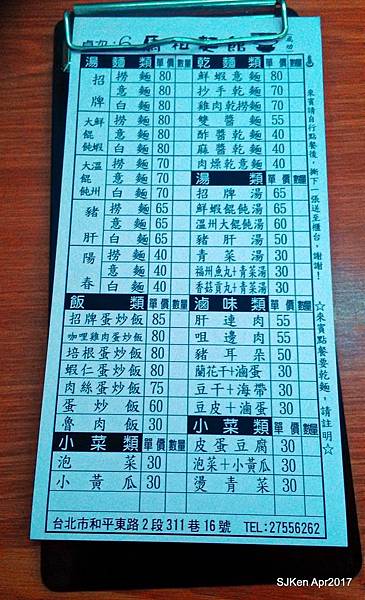 桌次：6
湯麵類 單價 數量
招牌 撈麵 80
意麵 80
白麵 80
大鮮餛蝦飩 撈麵 80
意麵 80
白麵 80
大溫餛州飩 撈麵 70
意麵 70
白麵 70
豬肝 撈麵 65
意麵 65
白麵 65
陽春 撈麵 40
意麵 40
白麵 40
飯類 單價 數量
招牌蛋炒飯 85
咖哩雞肉蛋炒飯 80
培根蛋炒飯 80
蝦仁蛋炒飯 80
肉絲蛋炒飯 75
蛋炒飯 60
魯肉飯 30
小菜類 單價 數量
泡菜 30
小黃瓜 30
乾麵類 單價 數量
鮮蝦意麵 80
抄手乾麵 70
雞肉乾撈麵 70
雙醬麵 55
酢醬乾麵 40
麻醬乾麵 40
肉燥乾意麵 40
湯類 單價 數量
招牌湯 65
鮮蝦餛飩湯 65
溫州大餛飩湯 60
豬肝湯 50
青菜湯 30
福州魚丸+青菜湯 30
香菇貢丸+青菜湯 30
滷味類 單價 數量
肝連肉 55
咀邊肉 55
豬耳朵 50
蘭花干+滷蛋 30
豆干+海帶 30
豆皮+滷蛋 30
小菜類 單價 數量
皮蛋豆腐 30
泡菜+小黃瓜 30
燙青菜 30
來賓請自行點餐後，撕下一張送至櫃台，謝謝！
☆來賓點餐要乾麵，請註明☆
台北市和平東路2段311巷16號 TEL:27556262
SJKen Apr2017